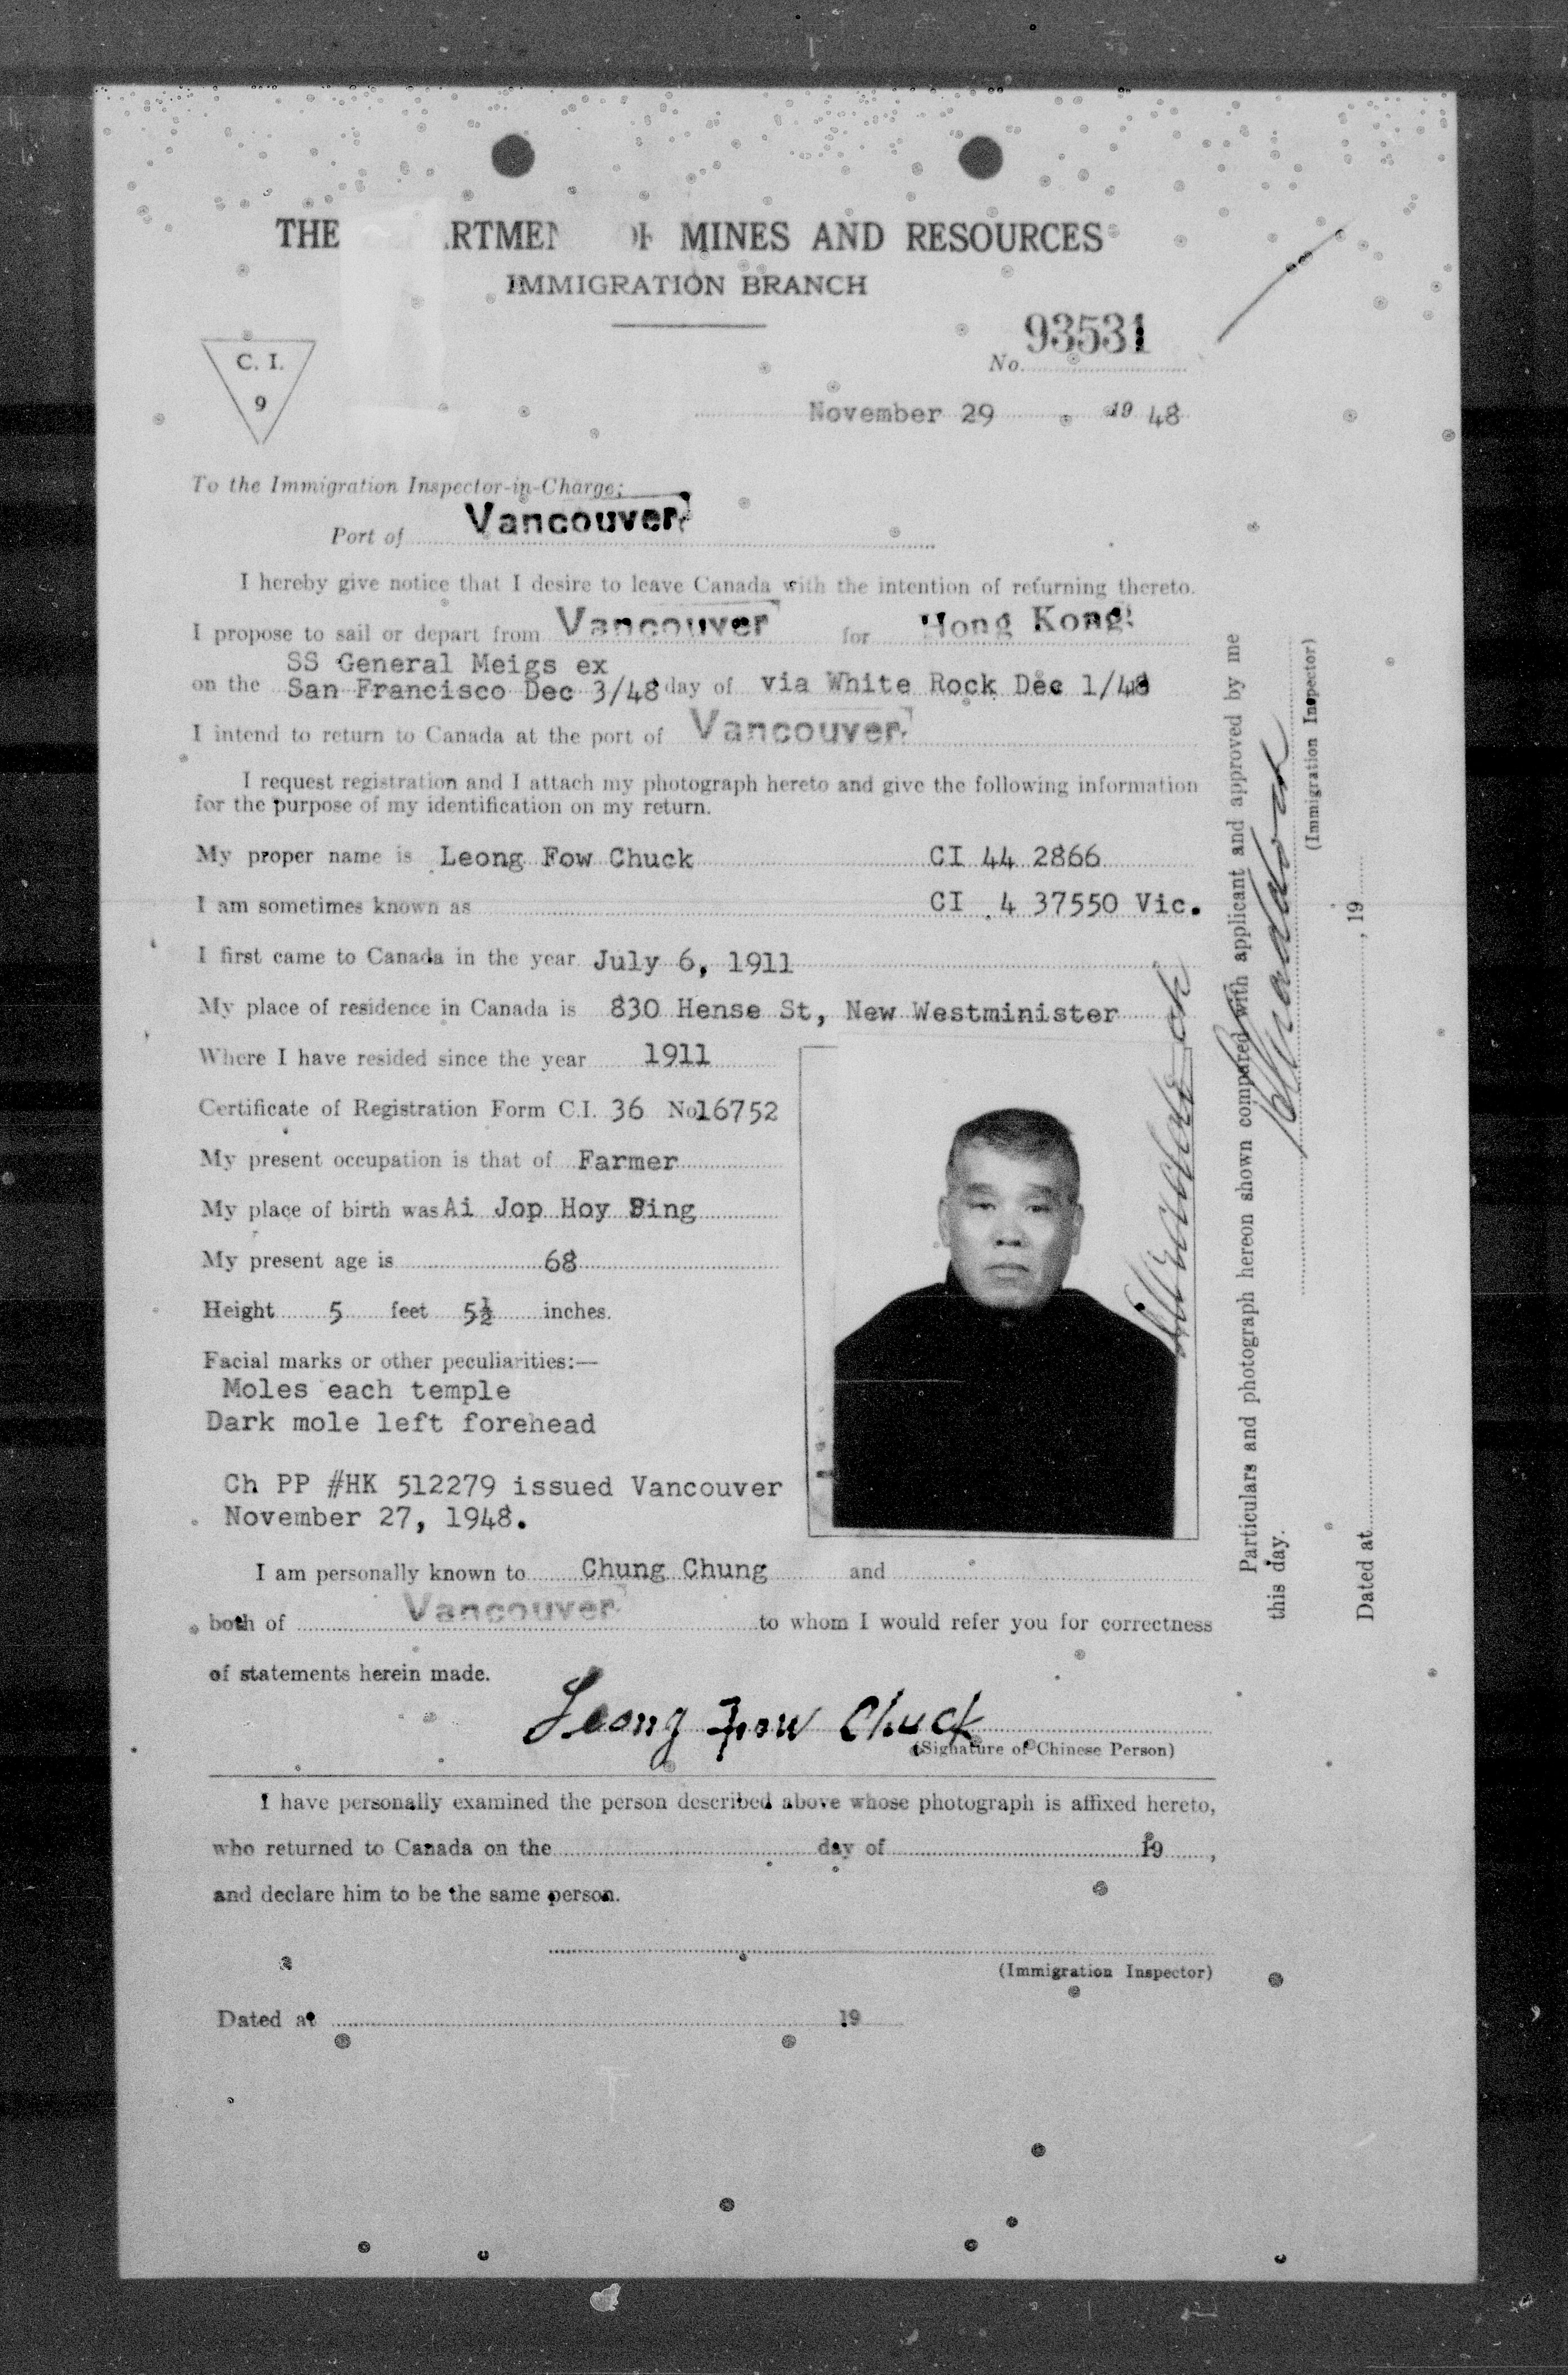 THE RTMEN OF MINES AND RESOURCES
IMMIGRATION BRANCH
C. I.
9
No. 93531
November 29 19 48
To the Immigration Inspector-in-Charge;
Port of Vancouver
I hereby give notice that I desire to leave Canada with the intention of returning thereto.
I propose to sail or depart from Vancouver for Hong Kong
SS General Meigs ex
on the San Francisco Dec 3/48 day of via White Rock Dec 1/48
I intend to return to Canada at the port of Vancouver
I request registration and I attach my photograph hereto and give the following information
for the purpose of my identification on my return.
My proper name is Leong Fow Chuck CI 44 2866
I am sometimes known as CI 4 37550 Vic.
I first came to Canada in the year July 6, 1911
My place of residence in Canada is 830 Hense St, New Westminister
Where I have resided since the year 1911
Certificate of Registration Form C.I. 36 No16752
My present occupation is that of Farmer
My place of birth was Ai Jop Hoy Ping
My present age is 68
Height 5 feet 5½ inches.
Facial marks or other peculiarities:—
Moles each temple
Dark mole left forehead
Ch PP #HK 512279 issued Vancouver
November 27, 1948.
I am personally known to Chung Chung and
both of Vancouver to whom I would refer you for correctness
of statements herein made.
Leong Fow Chuck
(Signature of Chinese Person)
I have personally examined the person described above whose photograph is affixed hereto,
who returned to Canada on the day of 19 ,
and declare him to be the same person.
(Immigration Inspector)
Dated at 19
Particulars and photograph hereon shown compared with applicant and approved by me
this day.
(Immigration Inspector)
Dated at , 19